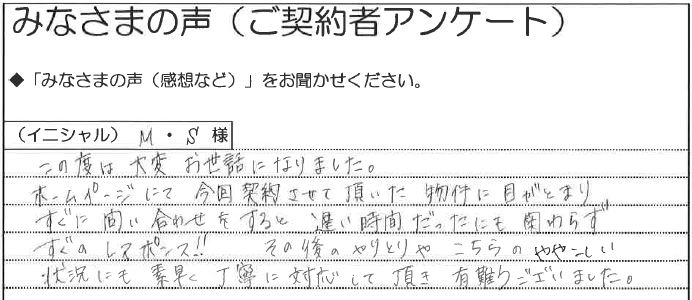 みなさまの声（ご契約者アンケート）
◆「みなさまの声（感想など）」をお聞かせください。
（イニシャル） M ・ S 様
この度は大変お世話になりました。
ホームページにて今回契約させて頂いた物件に目がとまり
すぐに問い合わせをすると遅い時間だったにも関わらず
すぐのレスポンス!! その後のやりとりやこちらのややこしい
状況にも素早く丁寧に対応して頂き有難うございました。